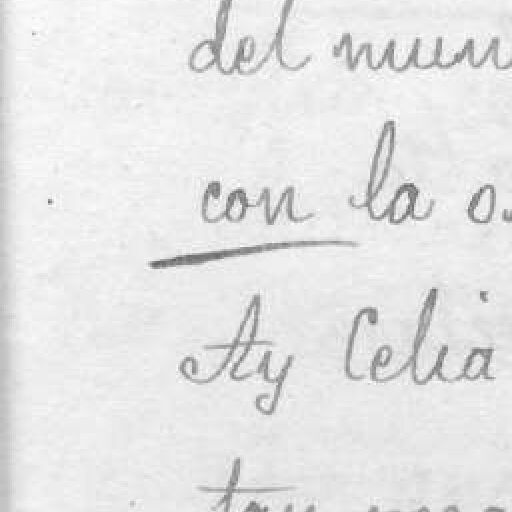 del mun
con la o
Ay Celia